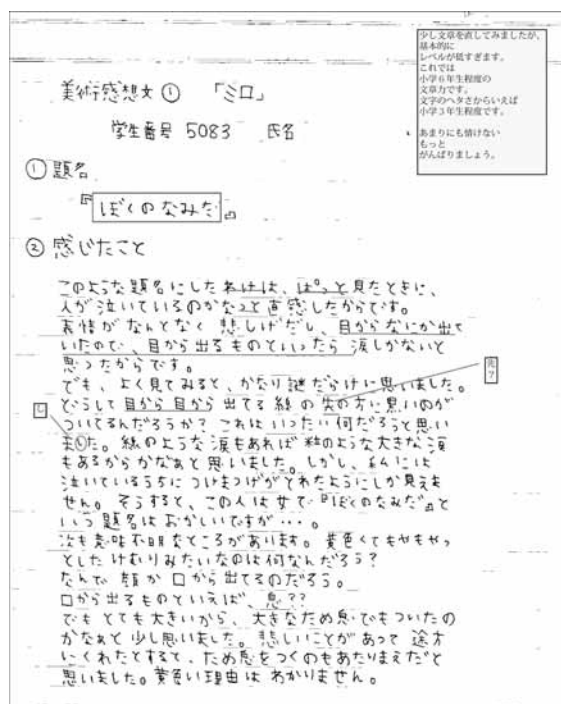 少し文章を直してみましたが、
基本的に
レベルが低すぎます。
これでは
小学6年生程度の
文章力です。
文字のヘタさからいえば
小学3年生程度です。
あまりにも情けない
もっと
がんばりましょう。
美術感想文① 「ミロ」
学生番号 5083 氏名
① 題名
『ぼくのなみだ』
② 感じたこと
このような題名にしたわけは、ぱっと見たときに、
人が泣いているのかなっと直感したからです。
表情がなんとなく悲しげだし、目からなにか出て
いたので、目から出るものといったら涙しかないと
思ったからです。
でも、よく見てみると、かなり謎だらけに思いました。
どうして目から目から出てる線の失の方に黒いのが
先?
ついてるんだろうか? これはいったい何だろうと思い
し
ました。線のような涙もあれば粒のような大きな涙
もあるからかなぁと思いました。しかし、私には
泣いているうちにつけまつげがとれたようにしか見えま
せん。そうすると、この人は女で『ぼくのなみだ』と
いう題名はおかしいですが・・・。
次も意味不明なところがあります。黄色くてもやもやっ
としたけむりみたいなのは何なんだろう?
なんで顔か口から出てるのだろう。
口から出るものといえば、息??
でもとても大きいから、大きなため息でもついたの
かなぁと少し思いました。悲しいことがあって途方
にくれたとすると、ため息をつくのもあたりまえだと
思いました。黄色い理由はわかりません。